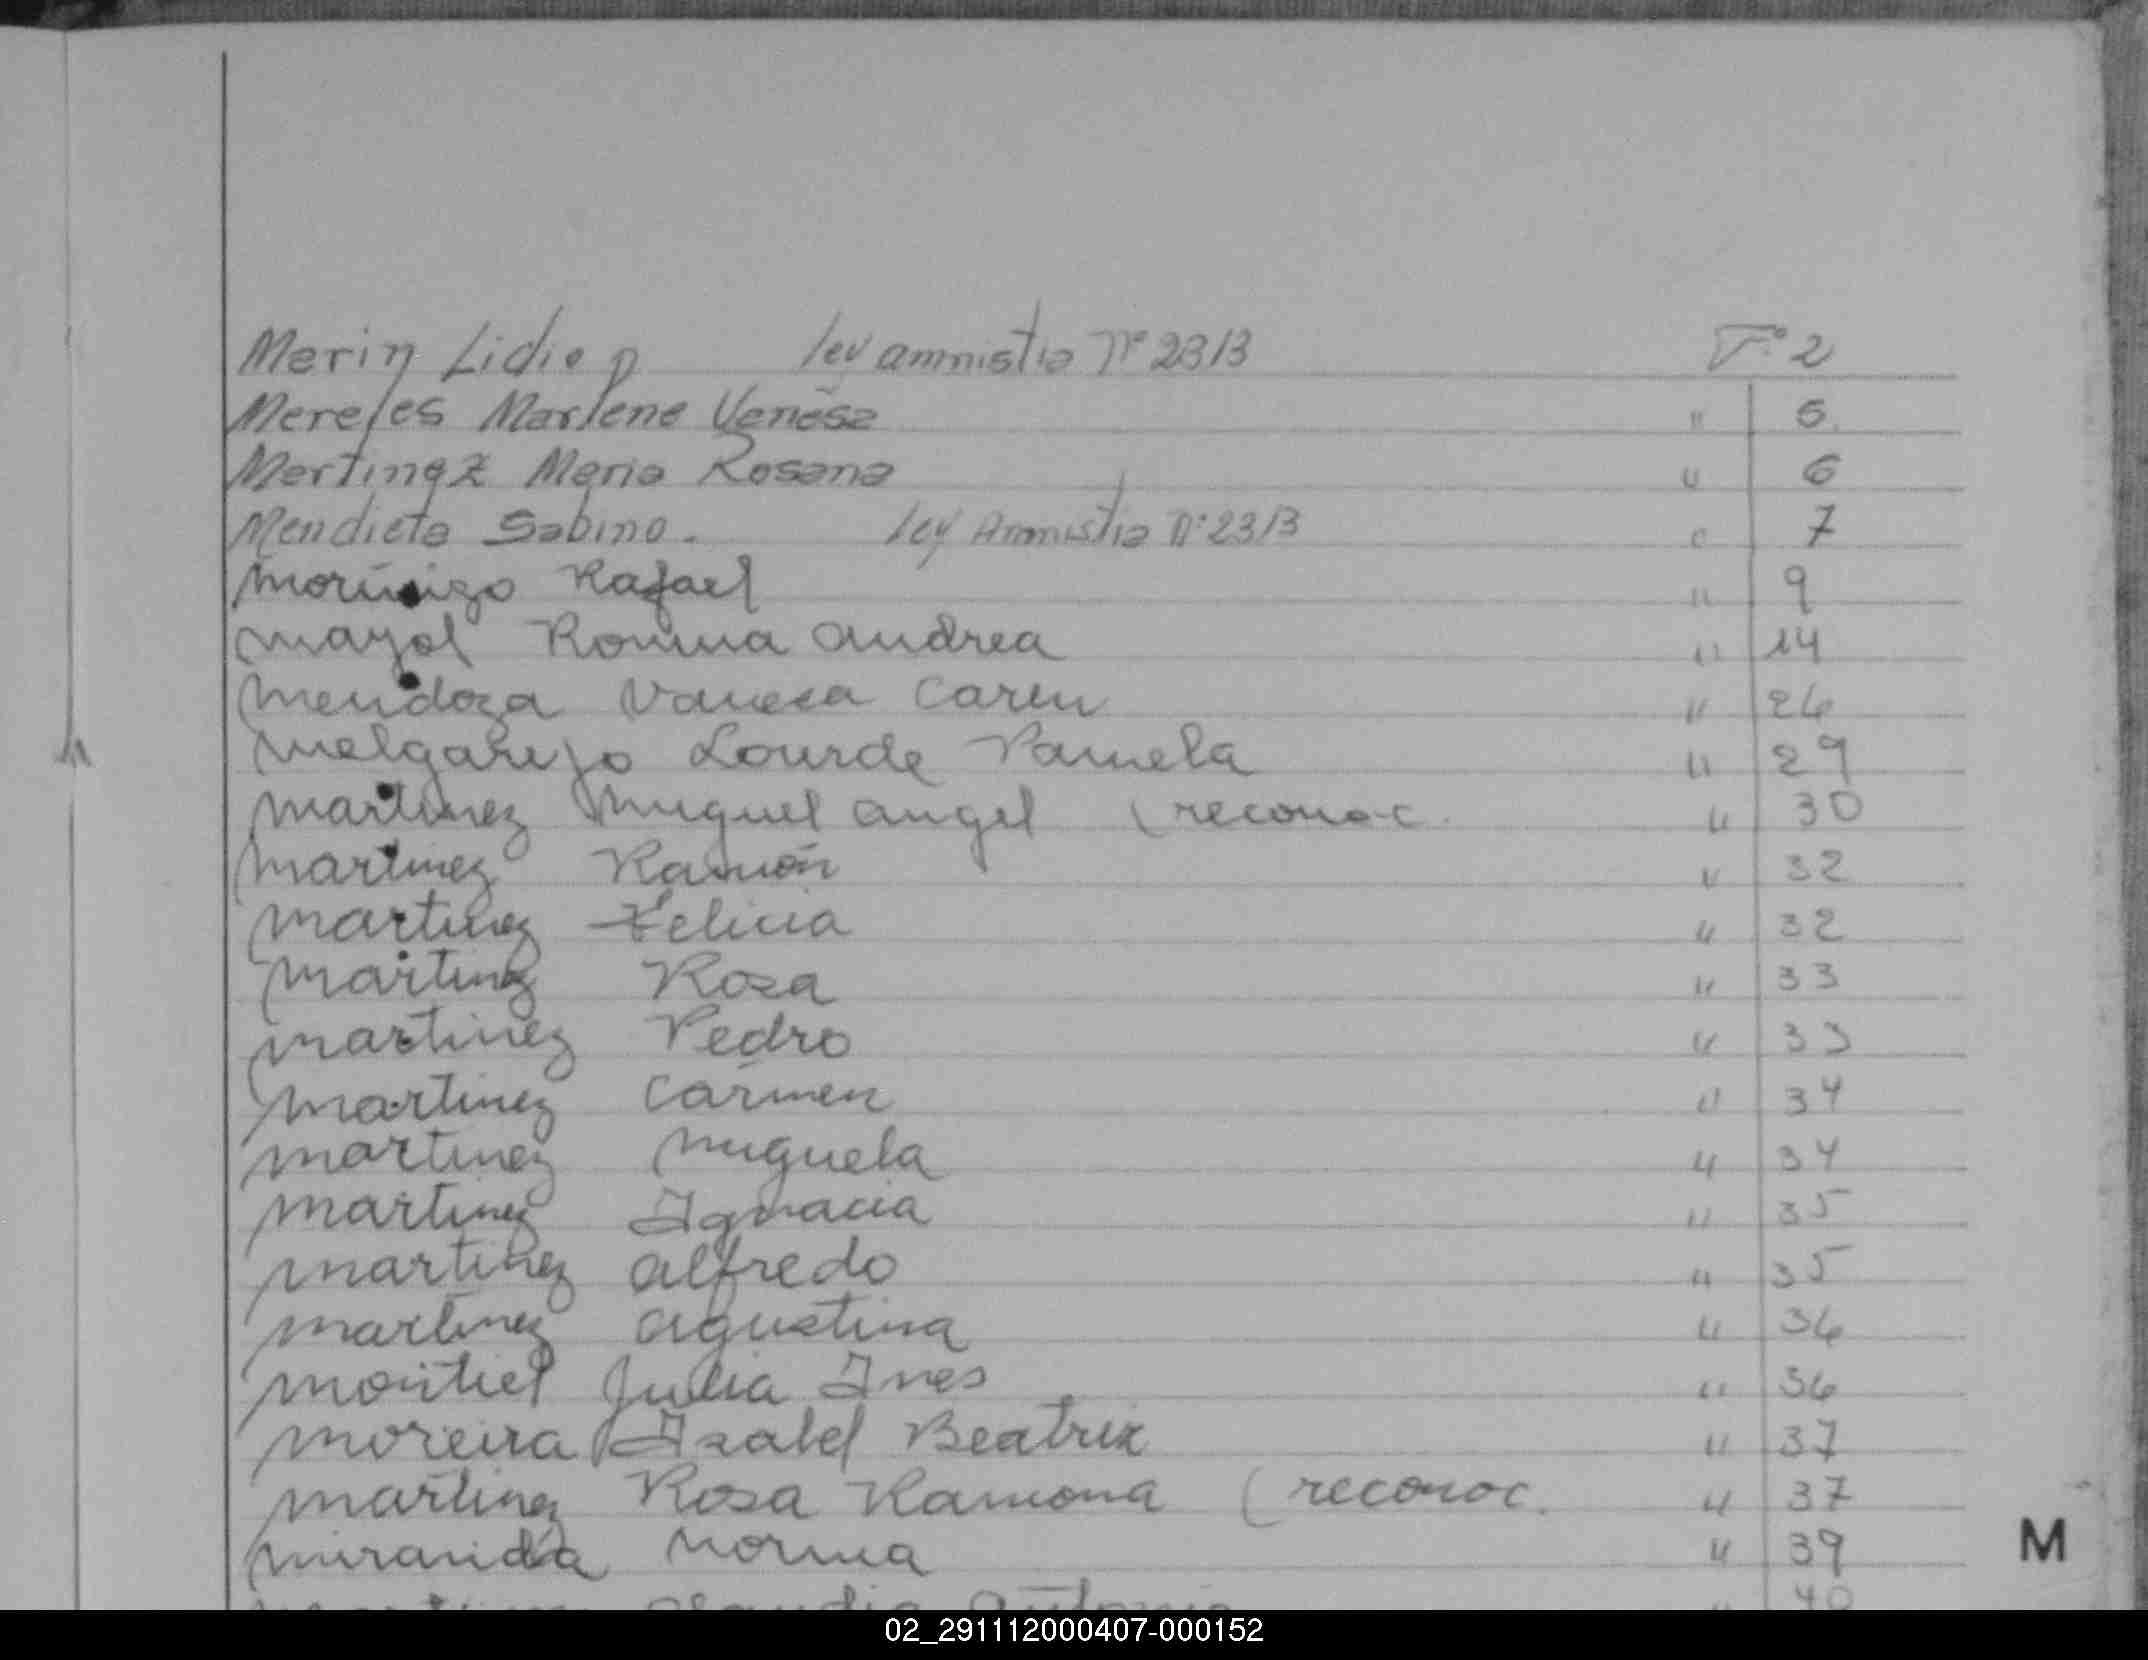 Marin Lidia p ley amnistia Nº 23/3 Fº 2
Mereles Marlene Venesa " 6
Martinez Maria Rosana " 6
Mendieta Sabino. ley Amnistia Nº 23/3 " 7
Morinigo Rafael " 9
Mayol Romina Andrea " 14
Mendoza Vanesa Caren " 26
Melgarejo Lourde Pamela " 29
Martinez Miguel Angel (reconoc. " 30
Martinez Ramón " 32
Martinez Felicia " 32
Martinez Rosa " 33
Martinez Pedro " 33
Martinez Carmen " 34
Martinez Miguela " 34
Martinez Ignacia " 35
Martinez Alfredo " 35
Martinez Agustina " 36
Montiel Julia Ines " 36
Moreira Isabel Beatrix " 37
Martinez Rosa Ramona (reconoc. " 37
Miranda Norma " 39
M
40
02_291112000407-000152